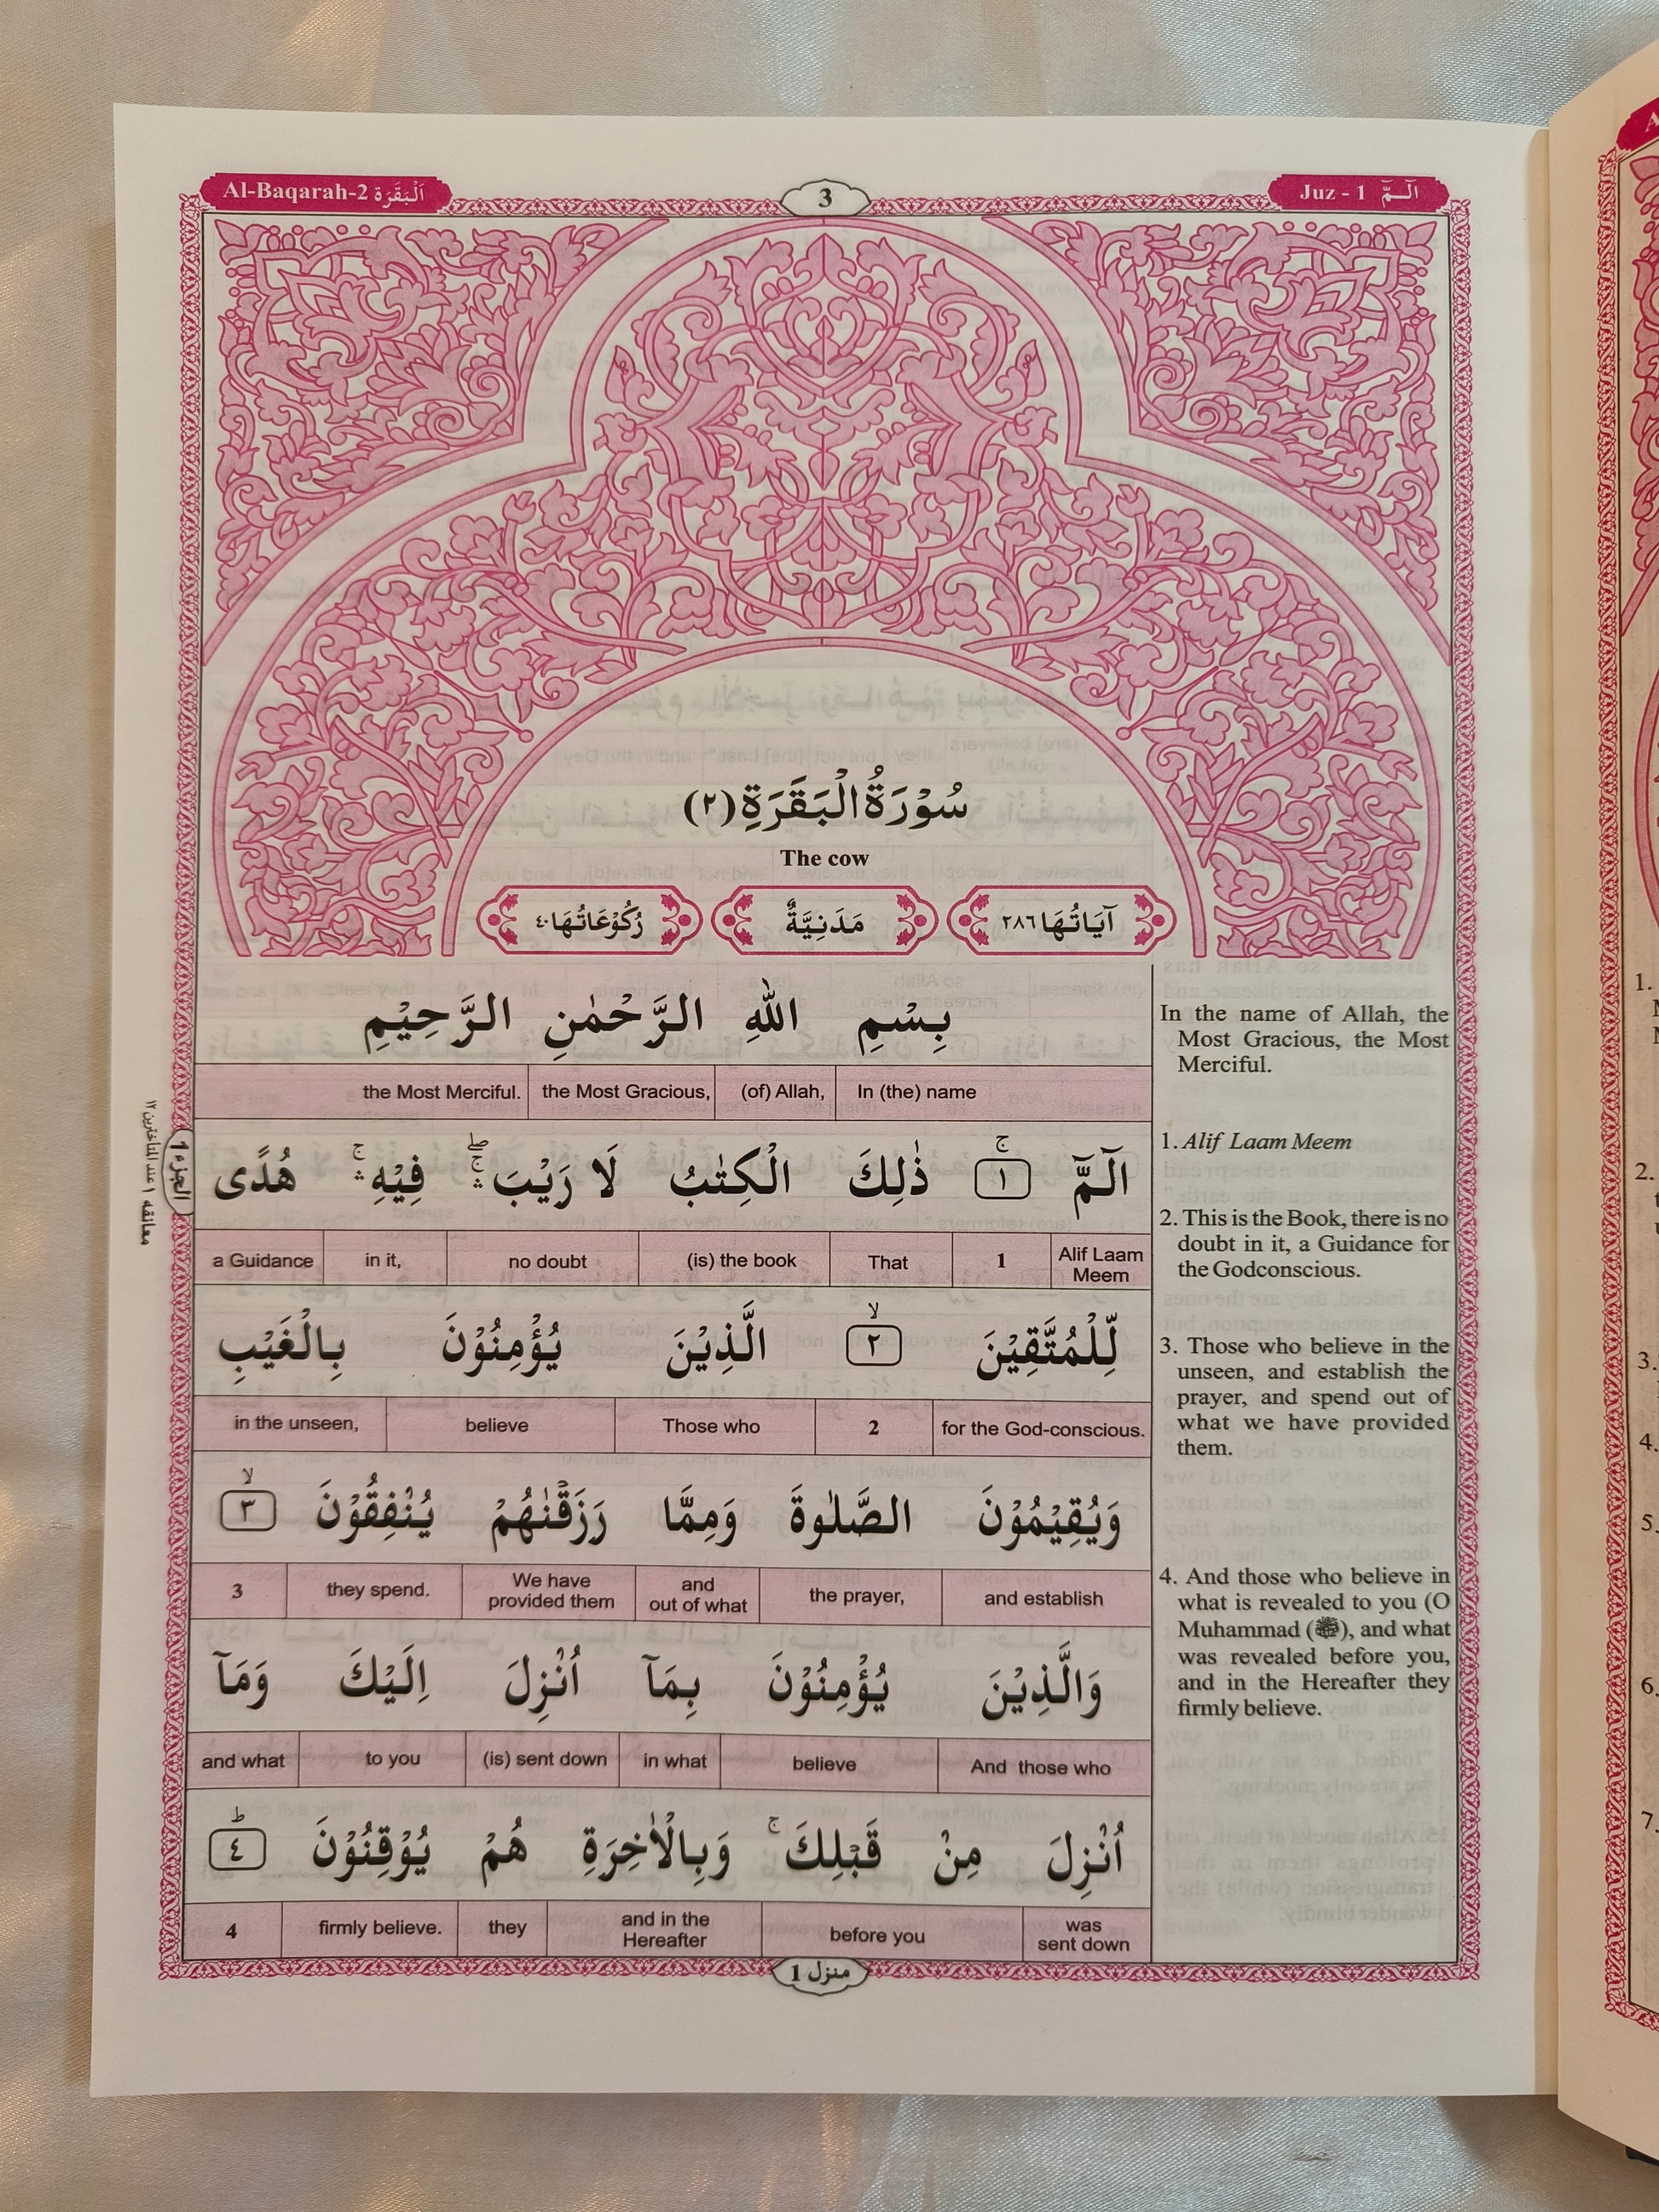 Al-Baqarah-2 اَلْبَقَرَة
3
Juz - 1 الٓـمّٓ
سُوْرَةُ الْبَقَرَةِ (٢)
The cow
اٰيَاتُهَا ٢٨٦
مَدَنِيَّةٌ
رُكُوْعَاتُهَا ٤٠
بِسْمِ اللّٰهِ الرَّحْمٰنِ الرَّحِيْمِ
In (the) name (of) Allah, the Most Gracious, the Most Merciful.
الٓمّٓ ۚ ١ ذٰلِكَ الْكِتٰبُ لَا رَيْبَ ۛۖۚ فِيْهِ ۛۚ هُدًى
Alif Laam Meem 1 That (is) the book no doubt in it, a Guidance
لِّلْمُتَّقِيْنَ ۙ ٢ الَّذِيْنَ يُؤْمِنُوْنَ بِالْغَيْبِ
for the God-conscious. 2 Those who believe in the unseen,
وَيُقِيْمُوْنَ الصَّلٰوةَ وَمِمَّا رَزَقْنٰهُمْ يُنْفِقُوْنَ ۙ ٣
and establish the prayer, and out of what We have provided them they spend. 3
وَالَّذِيْنَ يُؤْمِنُوْنَ بِمَآ اُنْزِلَ اِلَيْكَ وَمَآ
And those who believe in what (is) sent down to you and what
اُنْزِلَ مِنْ قَبْلِكَ ۚ وَبِالْاٰخِرَةِ هُمْ يُوْقِنُوْنَ ؕ ٤
was sent down before you and in the Hereafter they firmly believe. 4
In the name of Allah, the
Most Gracious, the Most
Merciful.
1. Alif Laam Meem
2. This is the Book, there is no
doubt in it, a Guidance for
the Godconscious.
3. Those who believe in the
unseen, and establish the
prayer, and spend out of
what we have provided
them.
4. And those who believe in
what is revealed to you (O
Muhammad (ﷺ), and what
was revealed before you,
and in the Hereafter they
firmly believe.
الجزء 1
معانقه ١ عند المتأخرين ١٢
منزل 1
1.
2.
3.
4.
5.
6.
7.